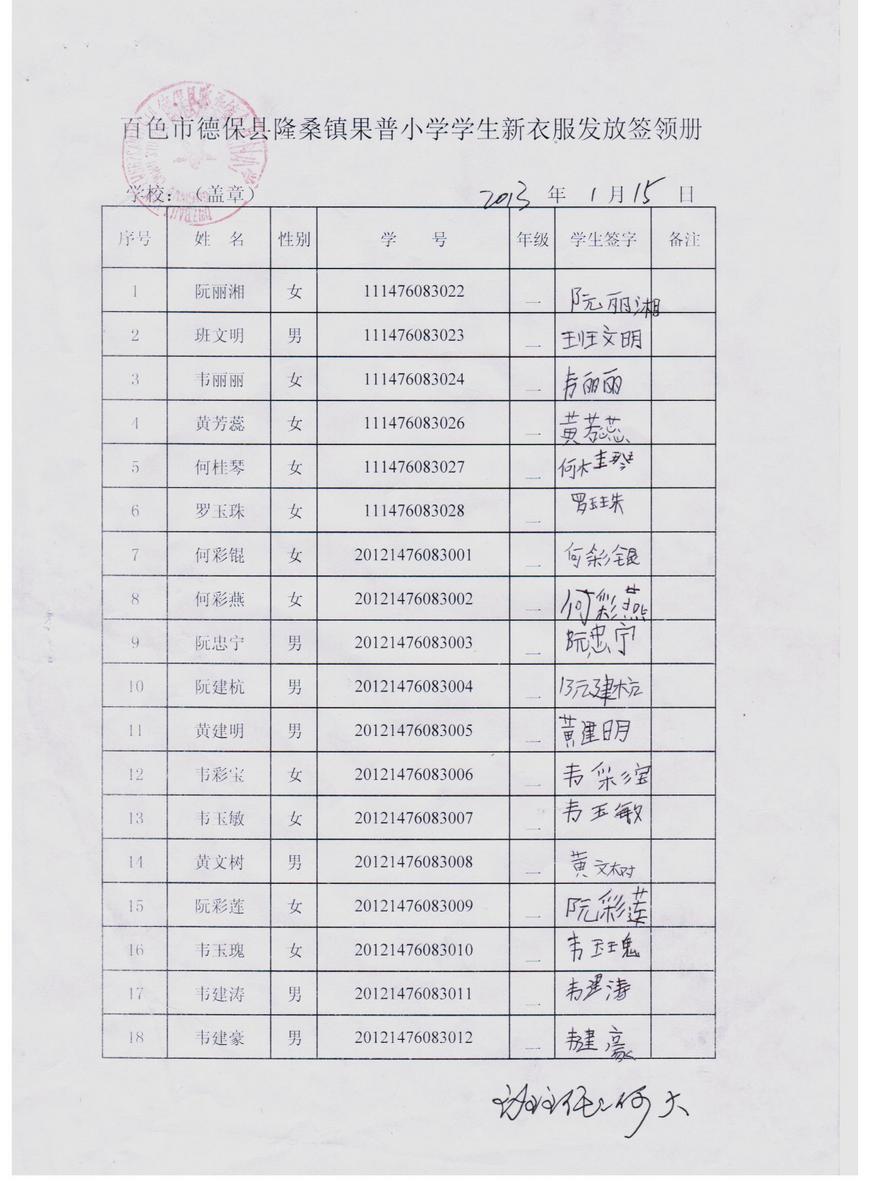 百色市德保县隆桑镇果普小学学生新衣服发放签领册
学校：（盖章） 2013 年 1 月 15 日
序号 姓 名 性别 学 号 年级 学生签字 备注
1 阮丽湘 女 111476083022 二 阮丽湘
2 班文明 男 111476083023 二 班文明
3 韦丽丽 女 111476083024 二 韦丽丽
4 黄芳蕊 女 111476083026 二 黄芳蕊
5 何桂琴 女 111476083027 二 何桂琴
6 罗玉珠 女 111476083028 二 罗玉珠
7 何彩锟 女 20121476083001 二 何彩银
8 何彩燕 女 20121476083002 二 何彩燕
9 阮忠宁 男 20121476083003 二 阮忠宁
10 阮建杭 男 20121476083004 二 阮建杭
11 黄建明 男 20121476083005 二 黄建明
12 韦彩宝 女 20121476083006 二 韦彩宝
13 韦玉敏 女 20121476083007 二 韦玉敏
14 黄文树 男 20121476083008 二 黄文树
15 阮彩莲 女 20121476083009 二 阮彩莲
16 韦玉瑰 女 20121476083010 二 韦玉瑰
17 韦建涛 男 20121476083011 二 韦建涛
18 韦建豪 男 20121476083012 二 韦建豪
班主任：何大